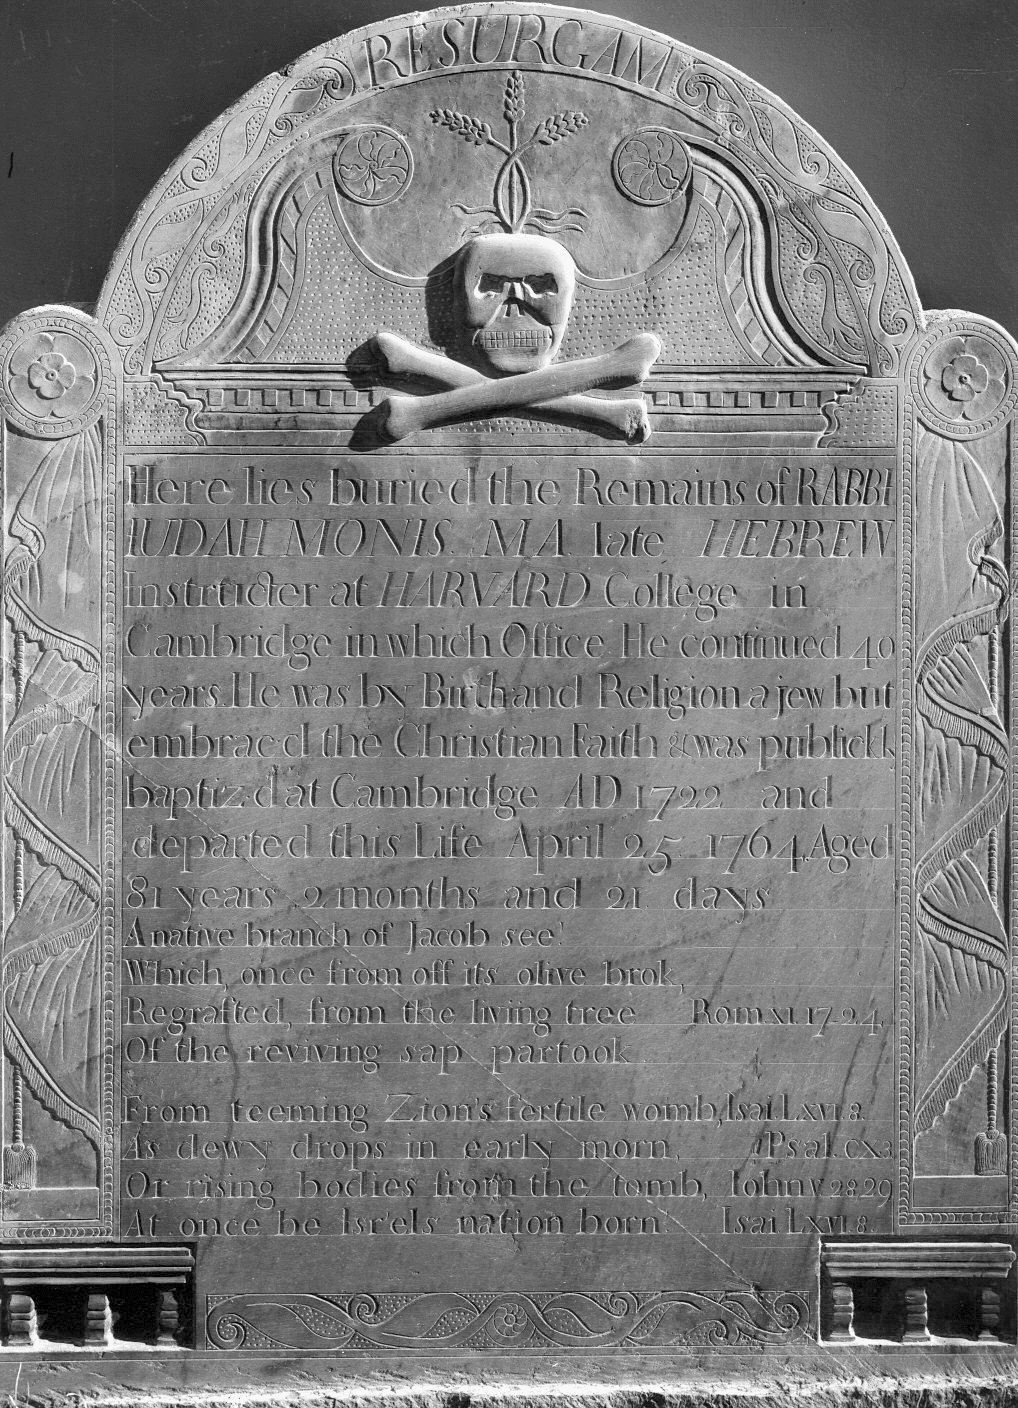 RESURGAM
Here lies buried the Remains of RABBI
IUDAH MONIS. MA late HEBREW
Instructer at HARVARD College in
Cambridge in which Office He continued 40
years He was by Birth and Religion a jew but
embraced the Christian Faith & was publickly
baptiz'd at Cambridge AD 1722. and
departed this Life April 25. 1764. Aged
81 years 2 months and 21 days
A native branch of Jacob see!
Which once from off its olive brok,
Regrafted, from the living tree Rom XI. 17-24
Of the reviving sap partook.
From teeming Zion's fertile womb, Isai LXVI.8.
As dewy drops in early morn, Psal. CX 3
Or rising bodies from the tomb, Iohn V 28 29
At once be Isr'els nation born! Isai LXVI 8